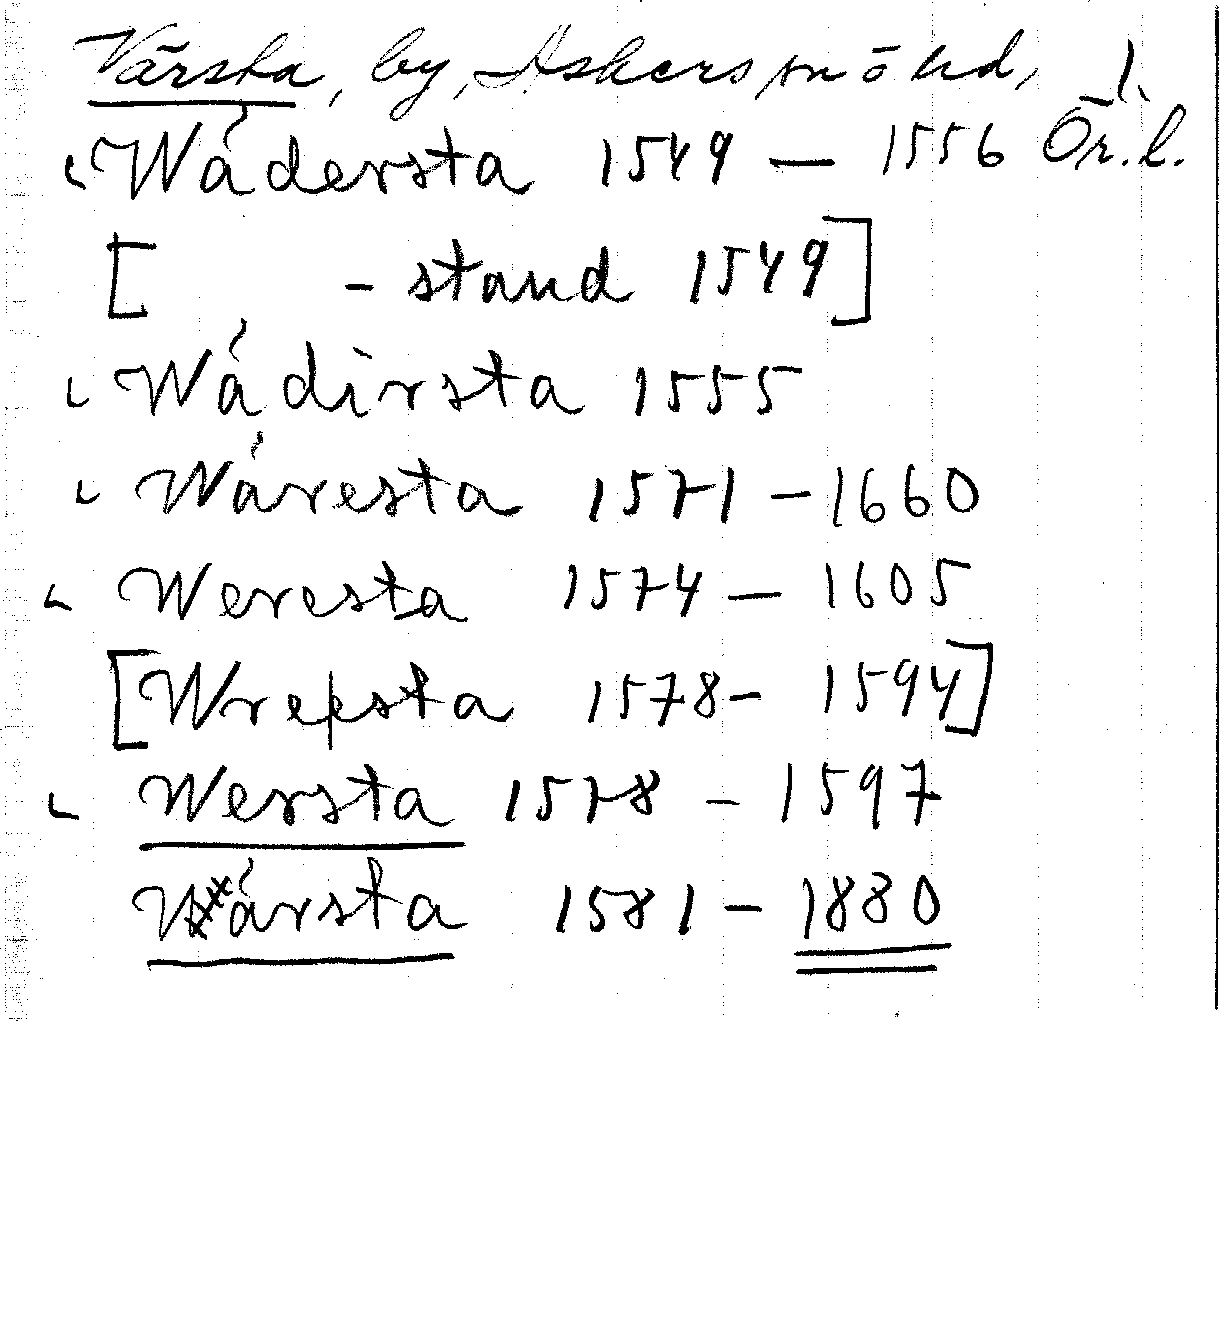 Värsta, by, Askers sn ö hd, 1.
Wädersta 1549 — 1556 Ör. l.
[ - stand 1549]
Wädirsta 1555
Wäresta 1571 – 1660
Weresta 1574 — 1605
[Wrepsta 1578 – 1594]
Wersta 1578 – 1597
Wärsta 1581 – 1880